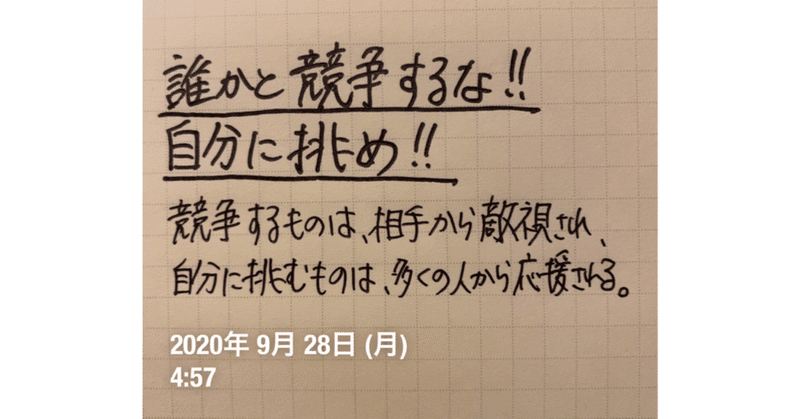 誰かと競争するな!!
自分に挑め!!
競争するものは、相手から敵視され、
自分に挑むものは、多くの人から応援される。
2020年 9月 28日 (月)
4:57